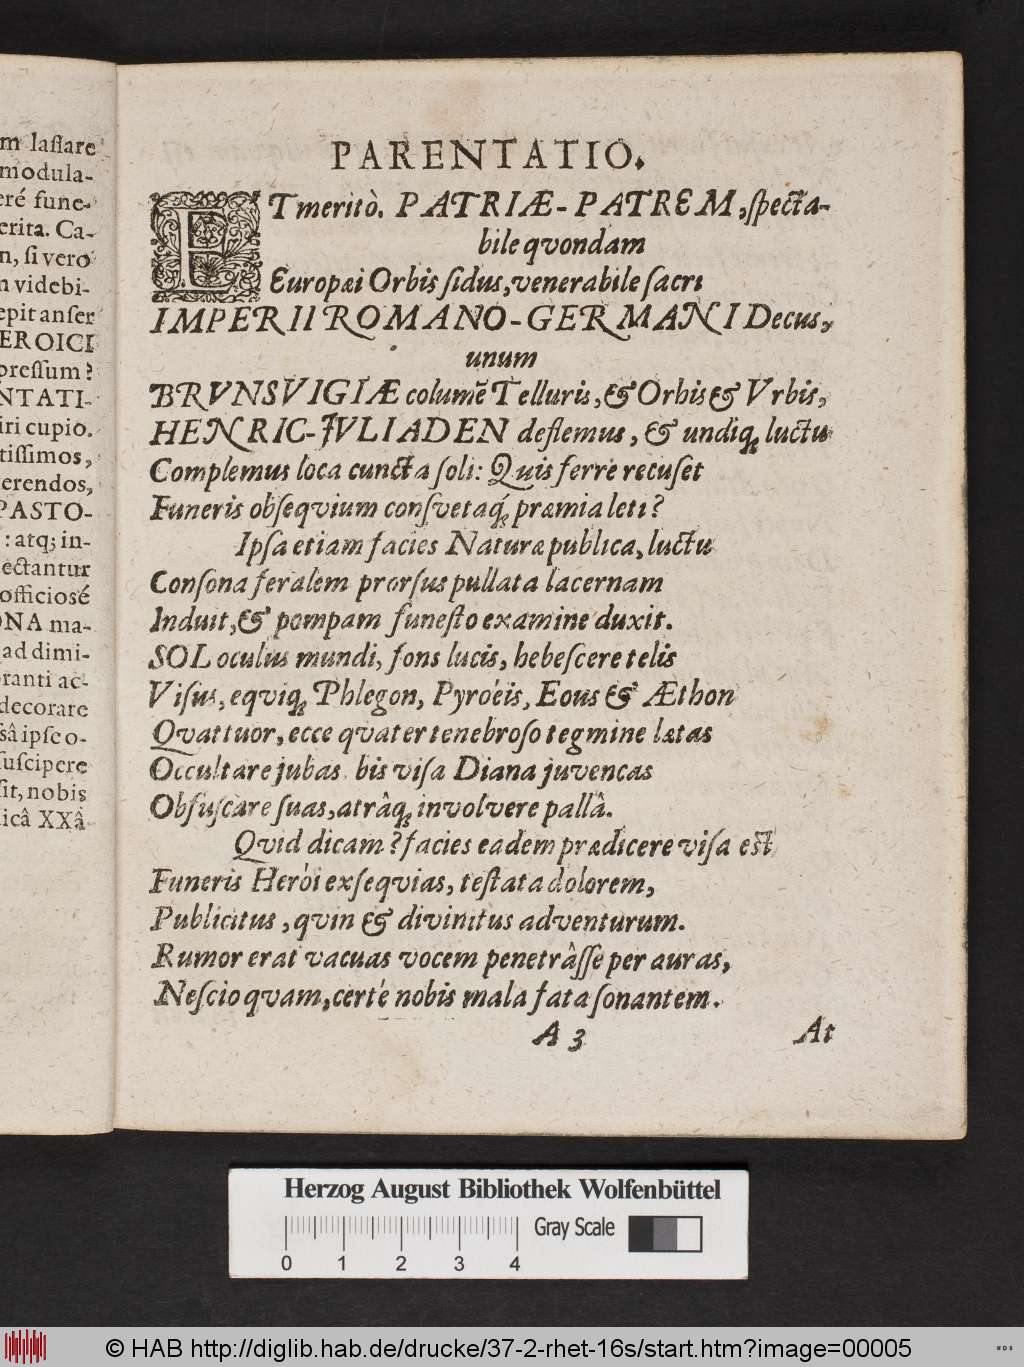 m laſſare
modula-
eré fune-
erita. Ca-
n, ſi vero
n videbi-
epit anſer
EROICI
preſſum?
NTATI-
iri cupio.
tiſſimos,
erendos,
PASTO-
: atq; in-
ectantur
officiosé
ONA ma-
ad dimi-
oranti ac-
decorare
sâ ipſe o-
ſuſcipere
ſit, nobis
licâ XXâ
PARENTATIO.
ET meritò. PATRIÆ-PATREM, ſpecta-
bile qvondam
Europæi Orbis ſidus, venerabile ſacri
IMPERII ROMANO-GERMANI Decus,
unum
BRVNSVIGIÆ columẽ Telluris, & Orbis & Vrbis,
HENRIC-JVLIADEN deflemus, & undiq; luctu
Complemus loca cuncta ſoli: Quis ferre recuſet
Funeris obſeqvium conſvetaq́; præmia leti?
Ipſa etiam facies Naturæ publica, luctu
Conſona feralem prorſus pullata lacernam
Induit, & pompam funeſto examine duxit.
SOL oculus mundi, fons lucis, hebeſcere telis
Viſus, eqviq; Phlegon, Pyroëis, Eous & Æthon
Qvattuor, ecce qvater tenebroſo tegmine lætas
Occultare jubas, bis viſa Diana juvencas
Obfuſcare ſuas, atrâq; involvere pallâ.
Qvid dicam? facies eadem prædicere viſa eſt
Funeris Herói exſeqvias, teſtata dolorem,
Publicitus, qvin & divinitus adventurum.
Rumor erat vacuas vocem penetrâſſe per auras,
Neſcio qvam, certé nobis mala fata ſonantem.
A 3 At
Herzog August Bibliothek Wolfenbüttel
Gray Scale
0 1 2 3 4
© HAB http://diglib.hab.de/drucke/37-2-rhet-16s/start.htm?image=00005